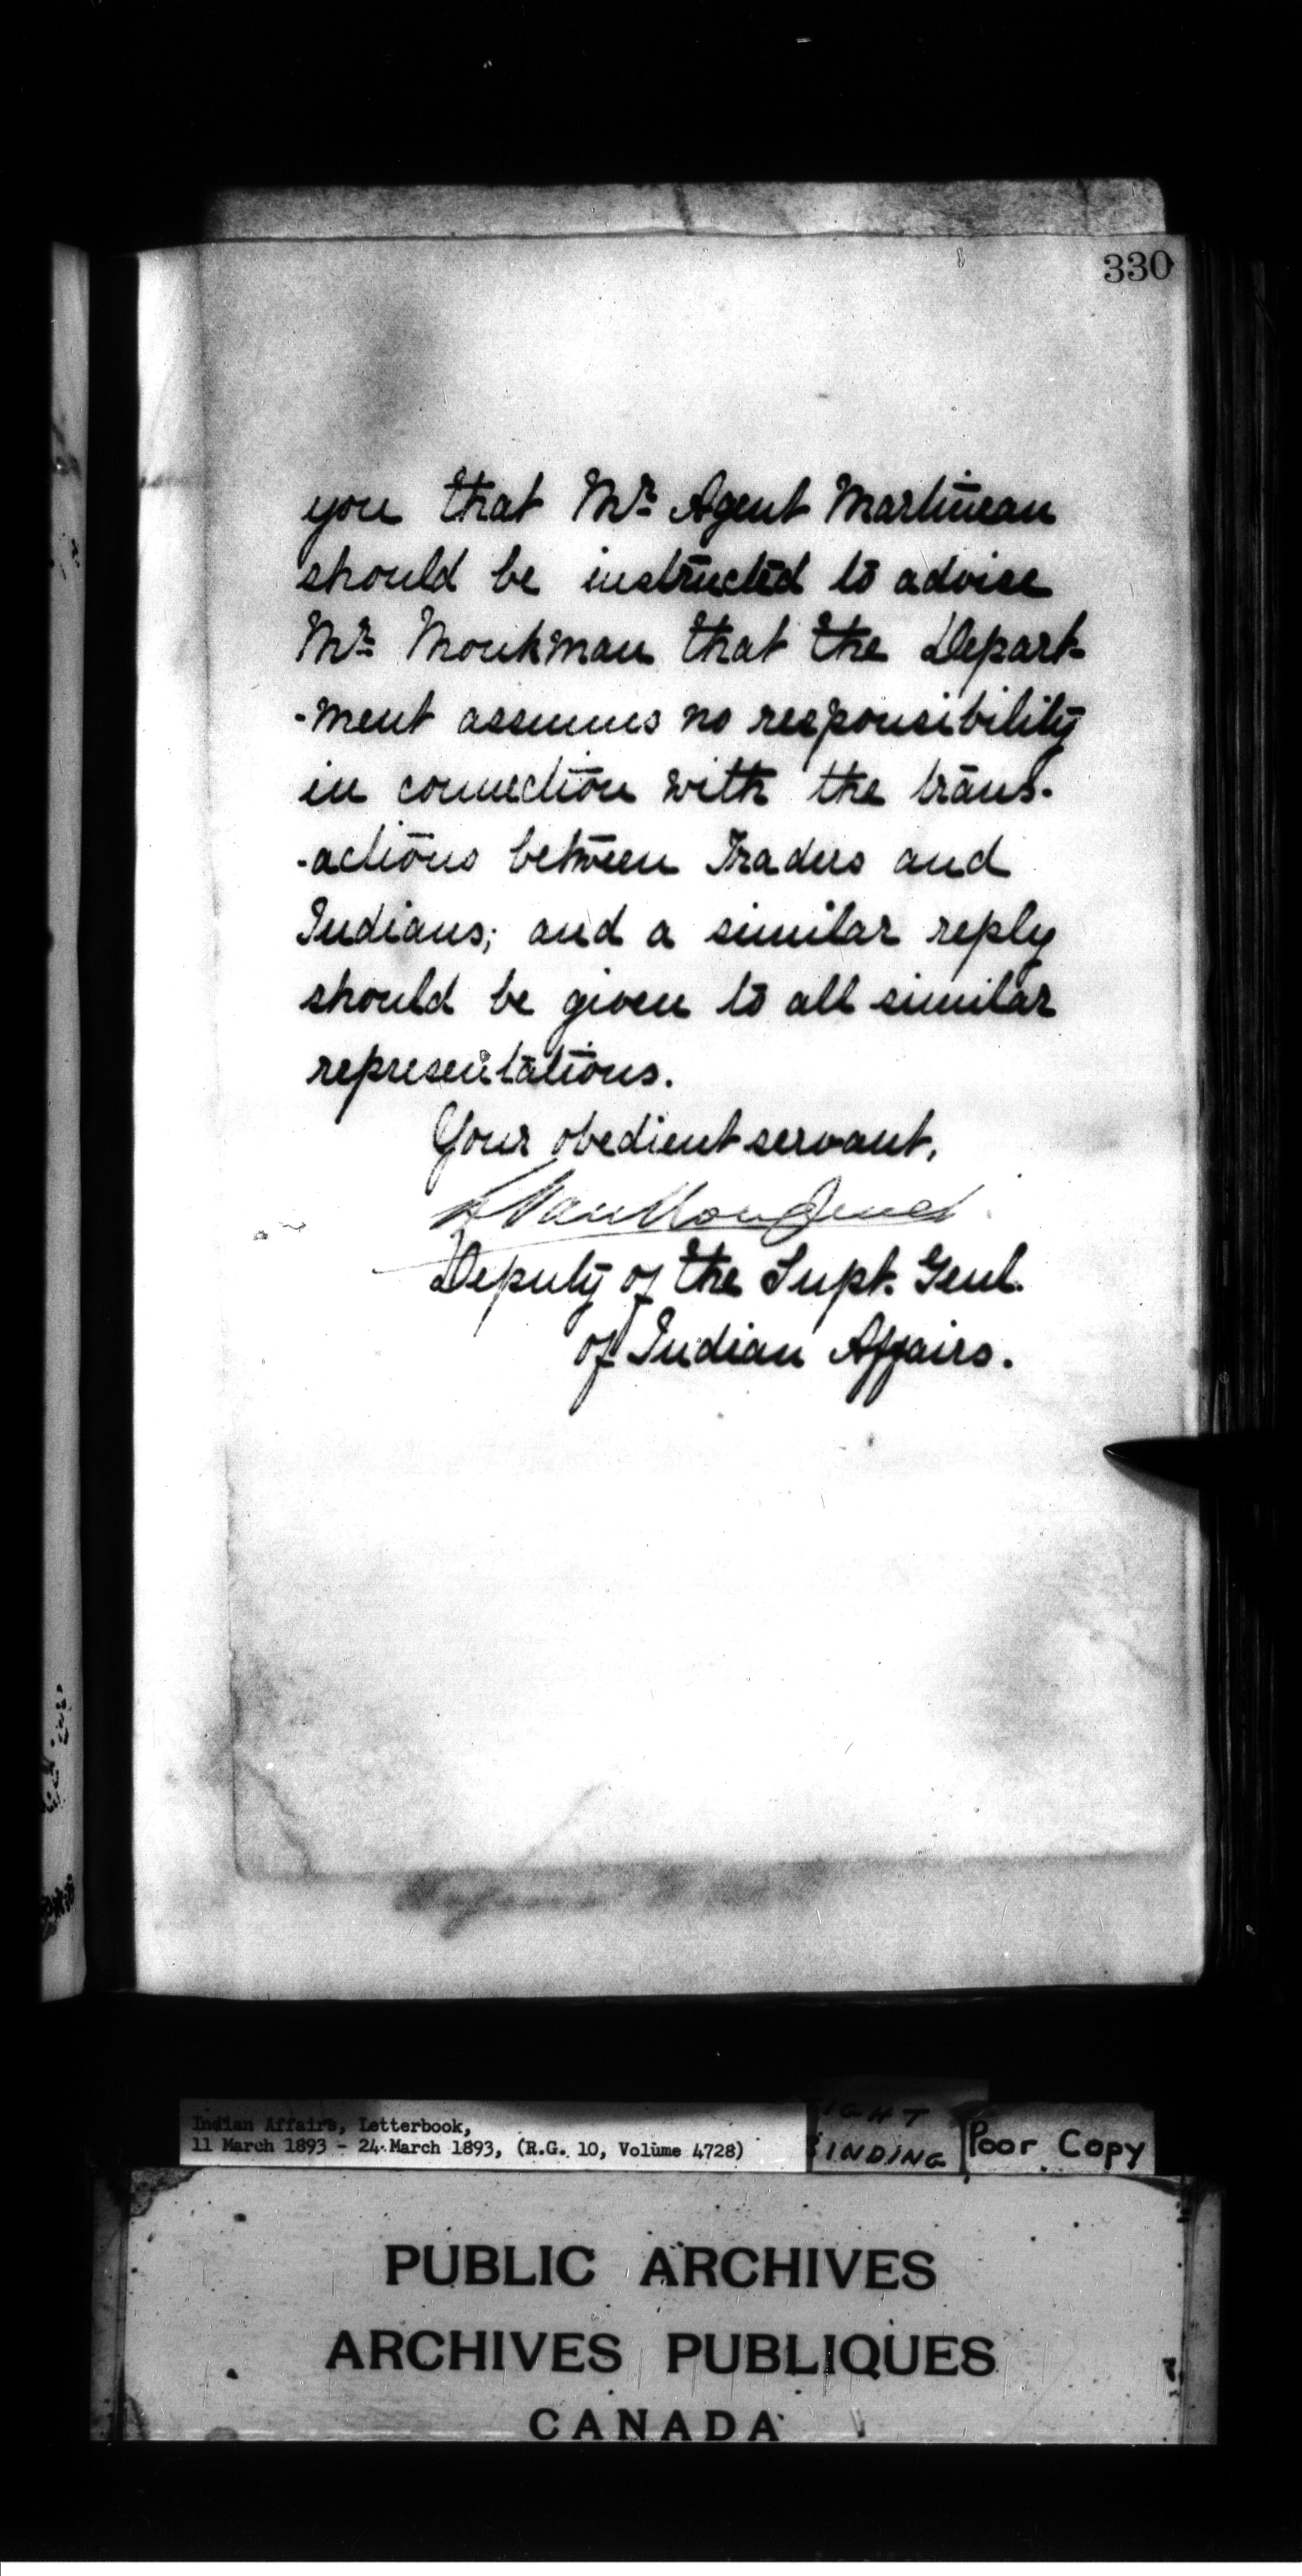 330
you that Mr. Agent Martineau
should be instructed to advise
Mr. Monkman that the Depart-
-ment assumes no responsibility
in connection with the trans-
-actions between Traders and
Indians; and a similar reply
should be given to all similar
representations.
Your obedient servant,
L Vankoughnet
Deputy of the Supt. Genl.
of Indian Affairs.
Indian Affairs, Letterbook,
11 March 1893 - 24 March 1893, (R.G. 10, Volume 4728)
Poor Copy
PUBLIC ARCHIVES
ARCHIVES PUBLIQUES
CANADA